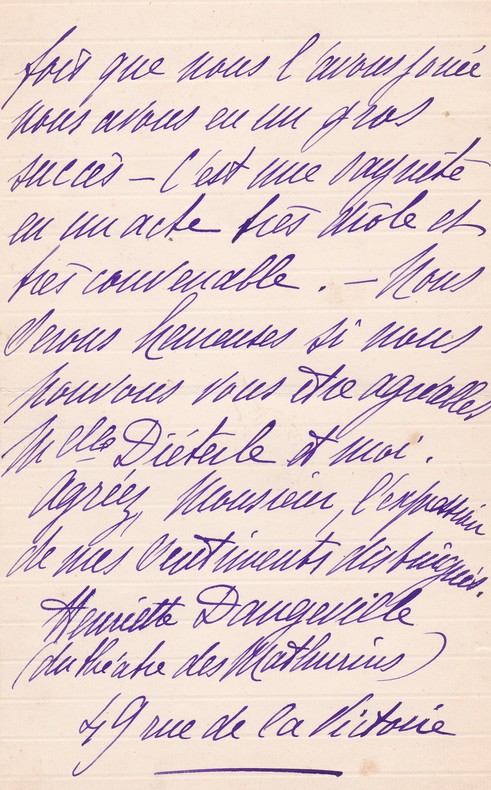 fois que nous l'avons jouée
nous avons eu un gros
succès – C'est une saynète
en un acte très drôle et
très convenable. – Nous
serons heureuses si nous
pouvons vous être agréables
Melle Diéterle et moi.
Agréez, Monsieur, l'expression
de mes sentiments distingués.
Henriette Dangeville
(du théâtre des Mathurins)
49 rue de la Victoire